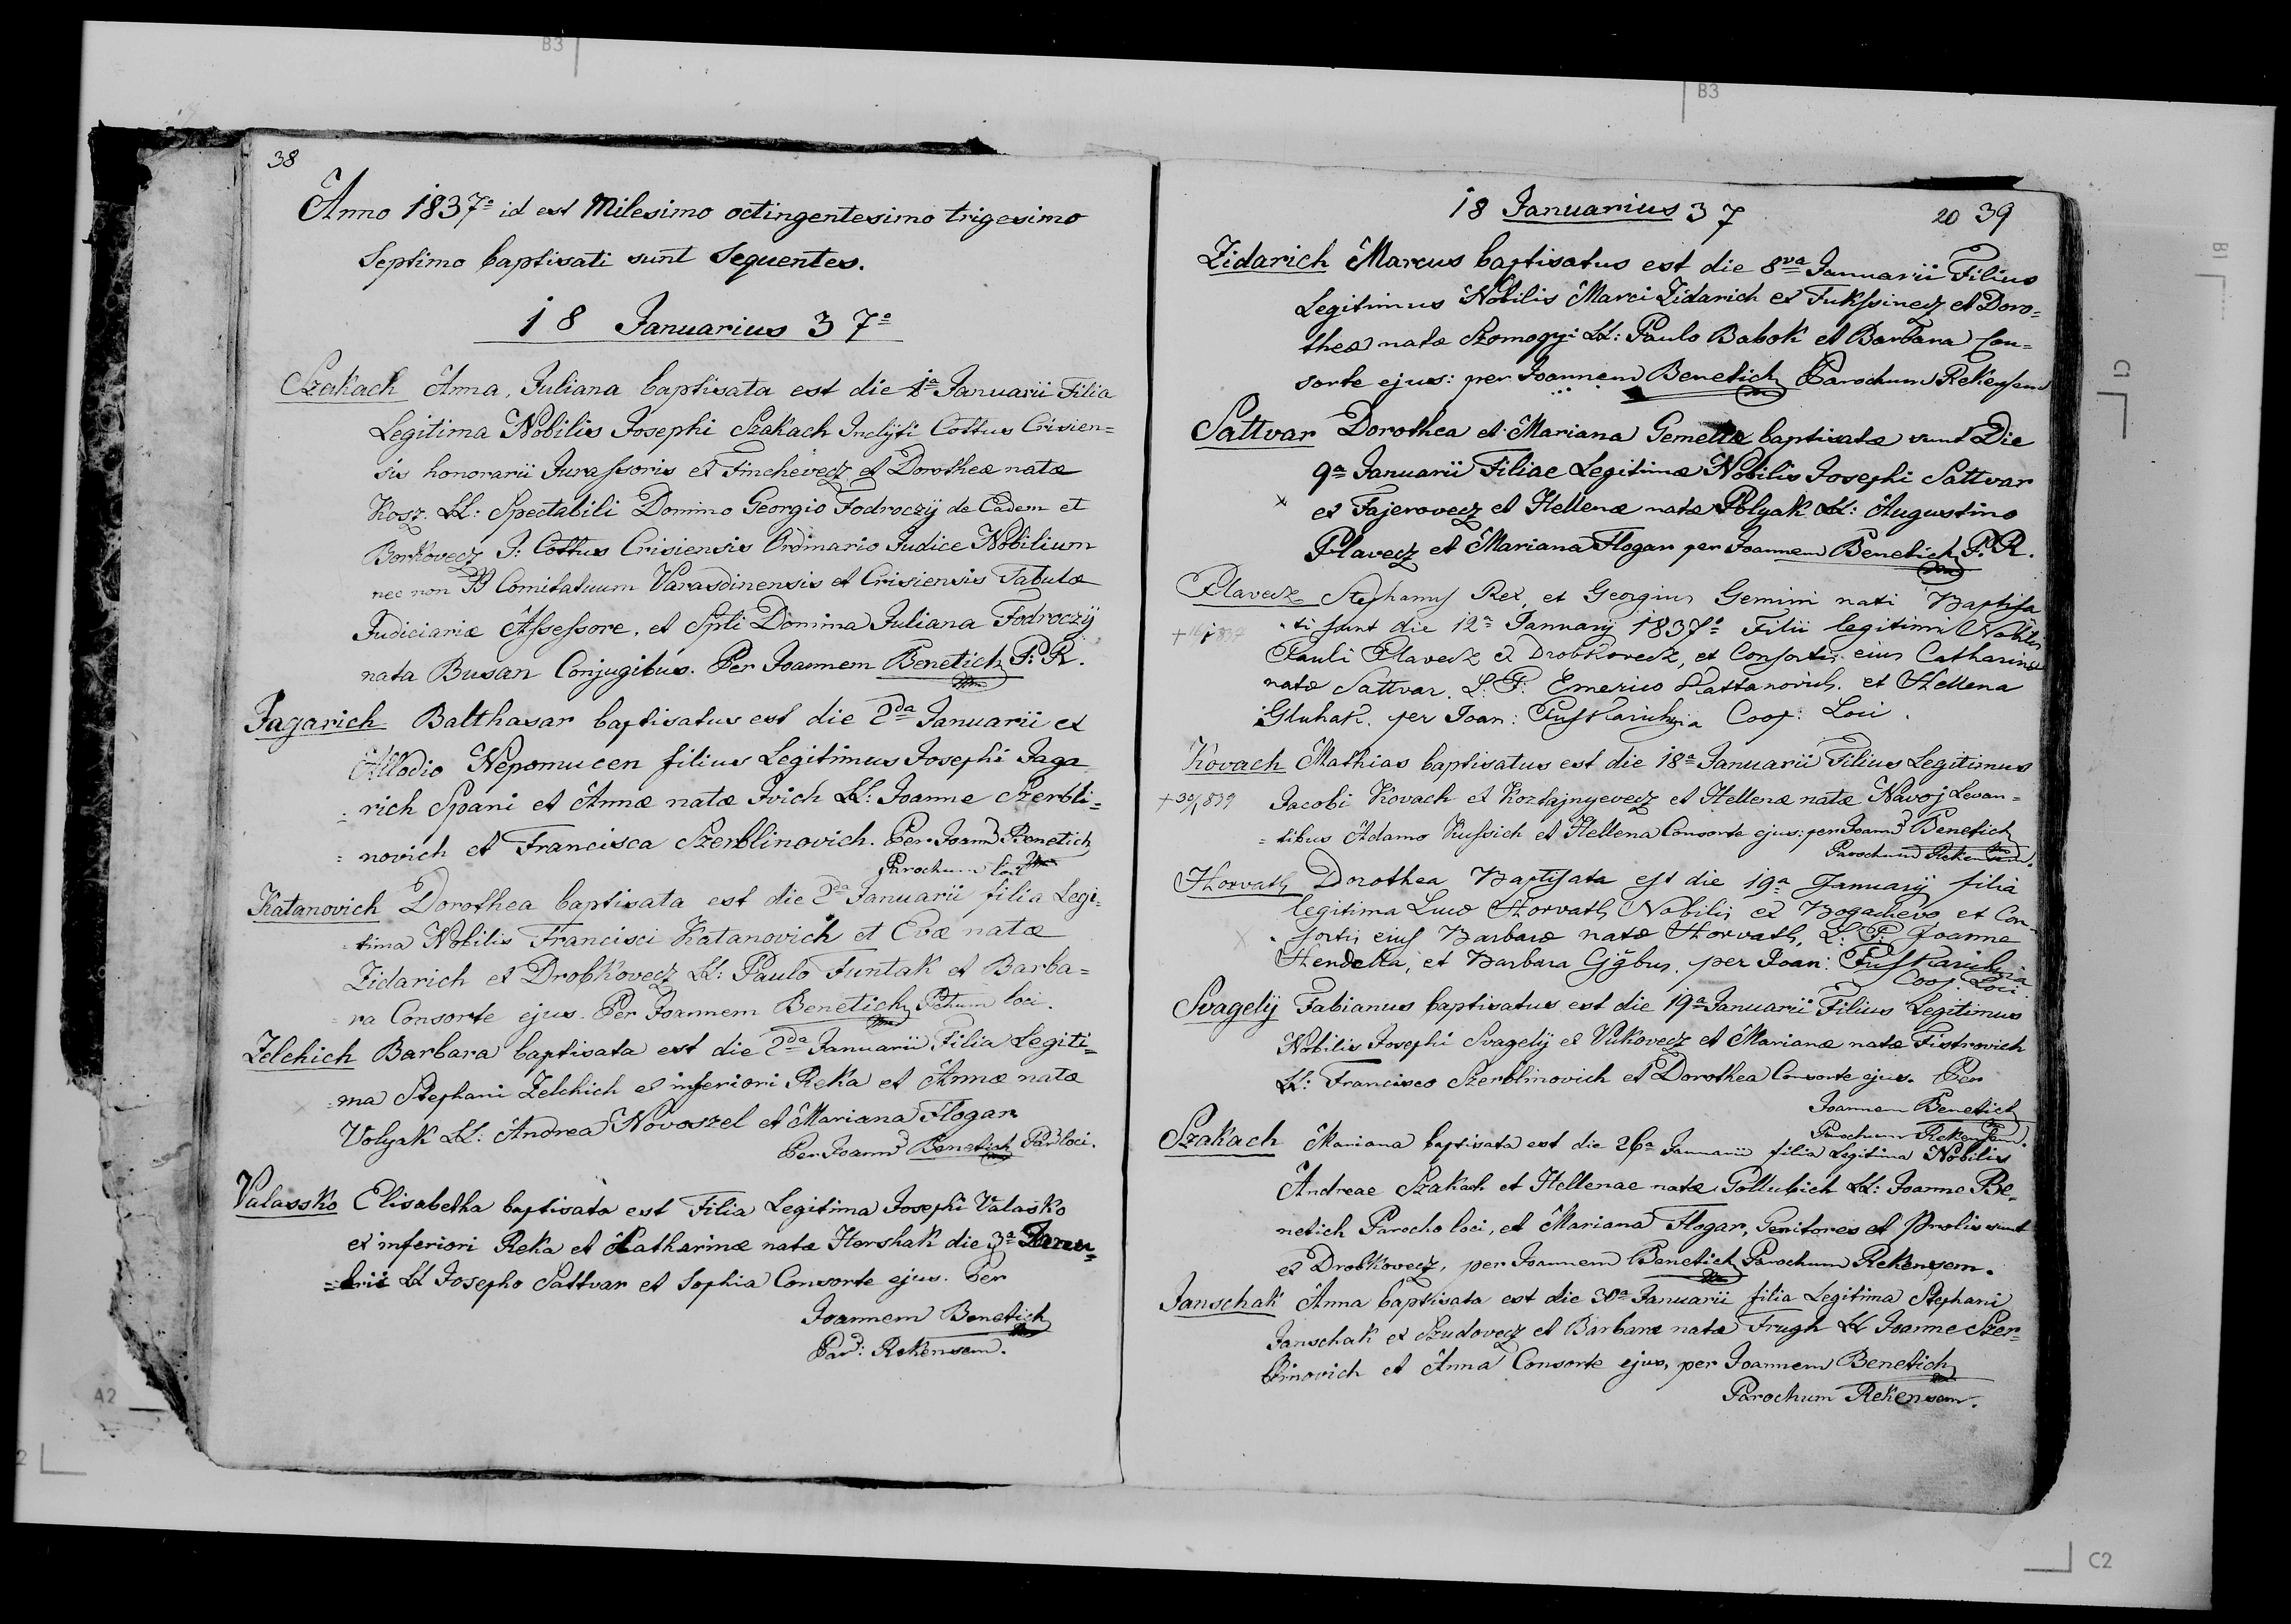 38
Anno 1837º id est Milesimo octingentesimo trigesimo
Septimo baptisati sunt Sequentes.
18 Januarius 37º
Szakach Anna, Juliana baptisata est die 1ª Januarii Filia
Legitima Nobilis Josephi Szakach Inclyti Cottus Crisien=
sis honorarii Jurassoris ex Finchevecz et Dorotheæ natæ
Kosz. LL: Spectabili Domino Georgio Fodroczij de Eadem et
Borkovecz I: Cottus Crisiensis Ordinario Judice Nobilium
nec non Comitatuum Varasdinensis et Crisiensis Tabulæ
Judiciariæ Assessore, et Spli Domina Juliana Fodroczij
nata Busan Conjugibus. Per Joannem Benetich P: R.
Jagarich Balthasar baptisatus est die 2da Januarii ex
Allodio Nepomucen filius Legitimus Josephi Jaga
rich Spani et Annæ natæ Ivich LL: Joanne Szerbli=
= novich et Francisca Szerblinovich. Per Joann Benetich
Parochum loci
Katanovich Dorothea baptisata est die 2da Januarii filia Legi=
=tima Nobilis Francisci Katanovich et Evæ natæ
Zidarich ex Drobkovecz LL: Paulo Funtak et Barba=
ra Consorte ejus. Per Joannem Benetich Pchum loci.
Zelchich Barbara baptisata est die 2da Januarii Filia Legiti=
=ma Stephani Zelchich ex inferiori Reka et Annæ natæ
Volyak LL: Andrea Novoszel et Mariana Flogar
Per Joann Benetich Par loci.
Valassko Elisabetha baptisata est Filia Legitima Josephi Valasko
ex inferiori Reka et Katharinæ natæ Hershak die 3ª Janu=
=arii LL Josepho Sattvar et Sophia Consorte ejus. Per
Joannem Benetich
Par: Rekensem.
18 Januarius 37
20 39
Zidarich Marcus baptisatus est die 8va Januarii Filius
Legitimus Nobilis Marci Zidarich ex Fukssinecz et Doro=
theæ natæ Szomogyi LL: Paulo Babok et Barbara Con=
sorte ejus: per Joannem Benetich Parochum Rekensem
Sattvar Dorothea et Mariana Gemellæ baptisatæ sunt Die
9ª Januarii Filiae Legitimæ Nobilis Josephi Sattvar
x ex Fajerovecz et Hellenæ natæ Polyak LL: Augustino
Plavecz et Mariana Flogar per Joannem Benetich P. R.
Plavecz Stephanus Rex, et Georgius Gemini nati Baptisa
ti sunt die 12ª Januarij 1837º Filii legitimi Nobilis
Pauli Plavecz ex Drobkovecz, et Consortis eius Catharinæ
natæ Sattvar. L: P: Emerico Kattanovich. et Hellena
Gluhak. per Joan: Coop: Loci.
Kovach Mathias baptisatus est die 18ª Januarii Filius Legitimus
Jacobi Kovach ex Koztajnyevecz et Hellenæ natæ Navoj Levan=
= tibus Adamo Kussich et Hellena Consorte ejus: per Joann Benetich
Parochum Rekensem.
Horvath Dorothea Baptisata est die 19ª Januarij filia
legitima Lucæ Horvath Nobilis ex Bogachevo et Con
sortis eius Barbaræ natæ Horvath, L: P: Joanne
Hendelta, et Barbara per Joan:
Coop Loci.
Svagely Fabianus baptisatus est die 19ª Januarii Filius Legitimus
Nobilis Josephi Svagely ex Vukovecz et Marianæ natæ Fistrovich
LL: Francisco Szerblinovich et Dorothea Consorte ejus. Per
Joannem Benetich
Parochum Rekensem.
Szakach Mariana baptisata est die 26ª Januarii filia Legitima Nobilis
Andreae Szakach et Hellenae natæ Gollubich LL: Joanne Be=
netich Parocho loci, et Mariana Flogar, Genitores et Prolis sunt
ex Drobkovecz, per Joannem Benetich Parochum Rekensem.
Janschak Anna baptisata est die 30ª Januarii filia Legitima Stephani
Janschak ex Szudovecz et Barbaræ natæ Frugh LL Joanne Szer=
blinovich et Anna Consorte ejus, per Joannem Benetich
Parochum Rekensem.
B3
B3
B1
C1
A2
2
C2